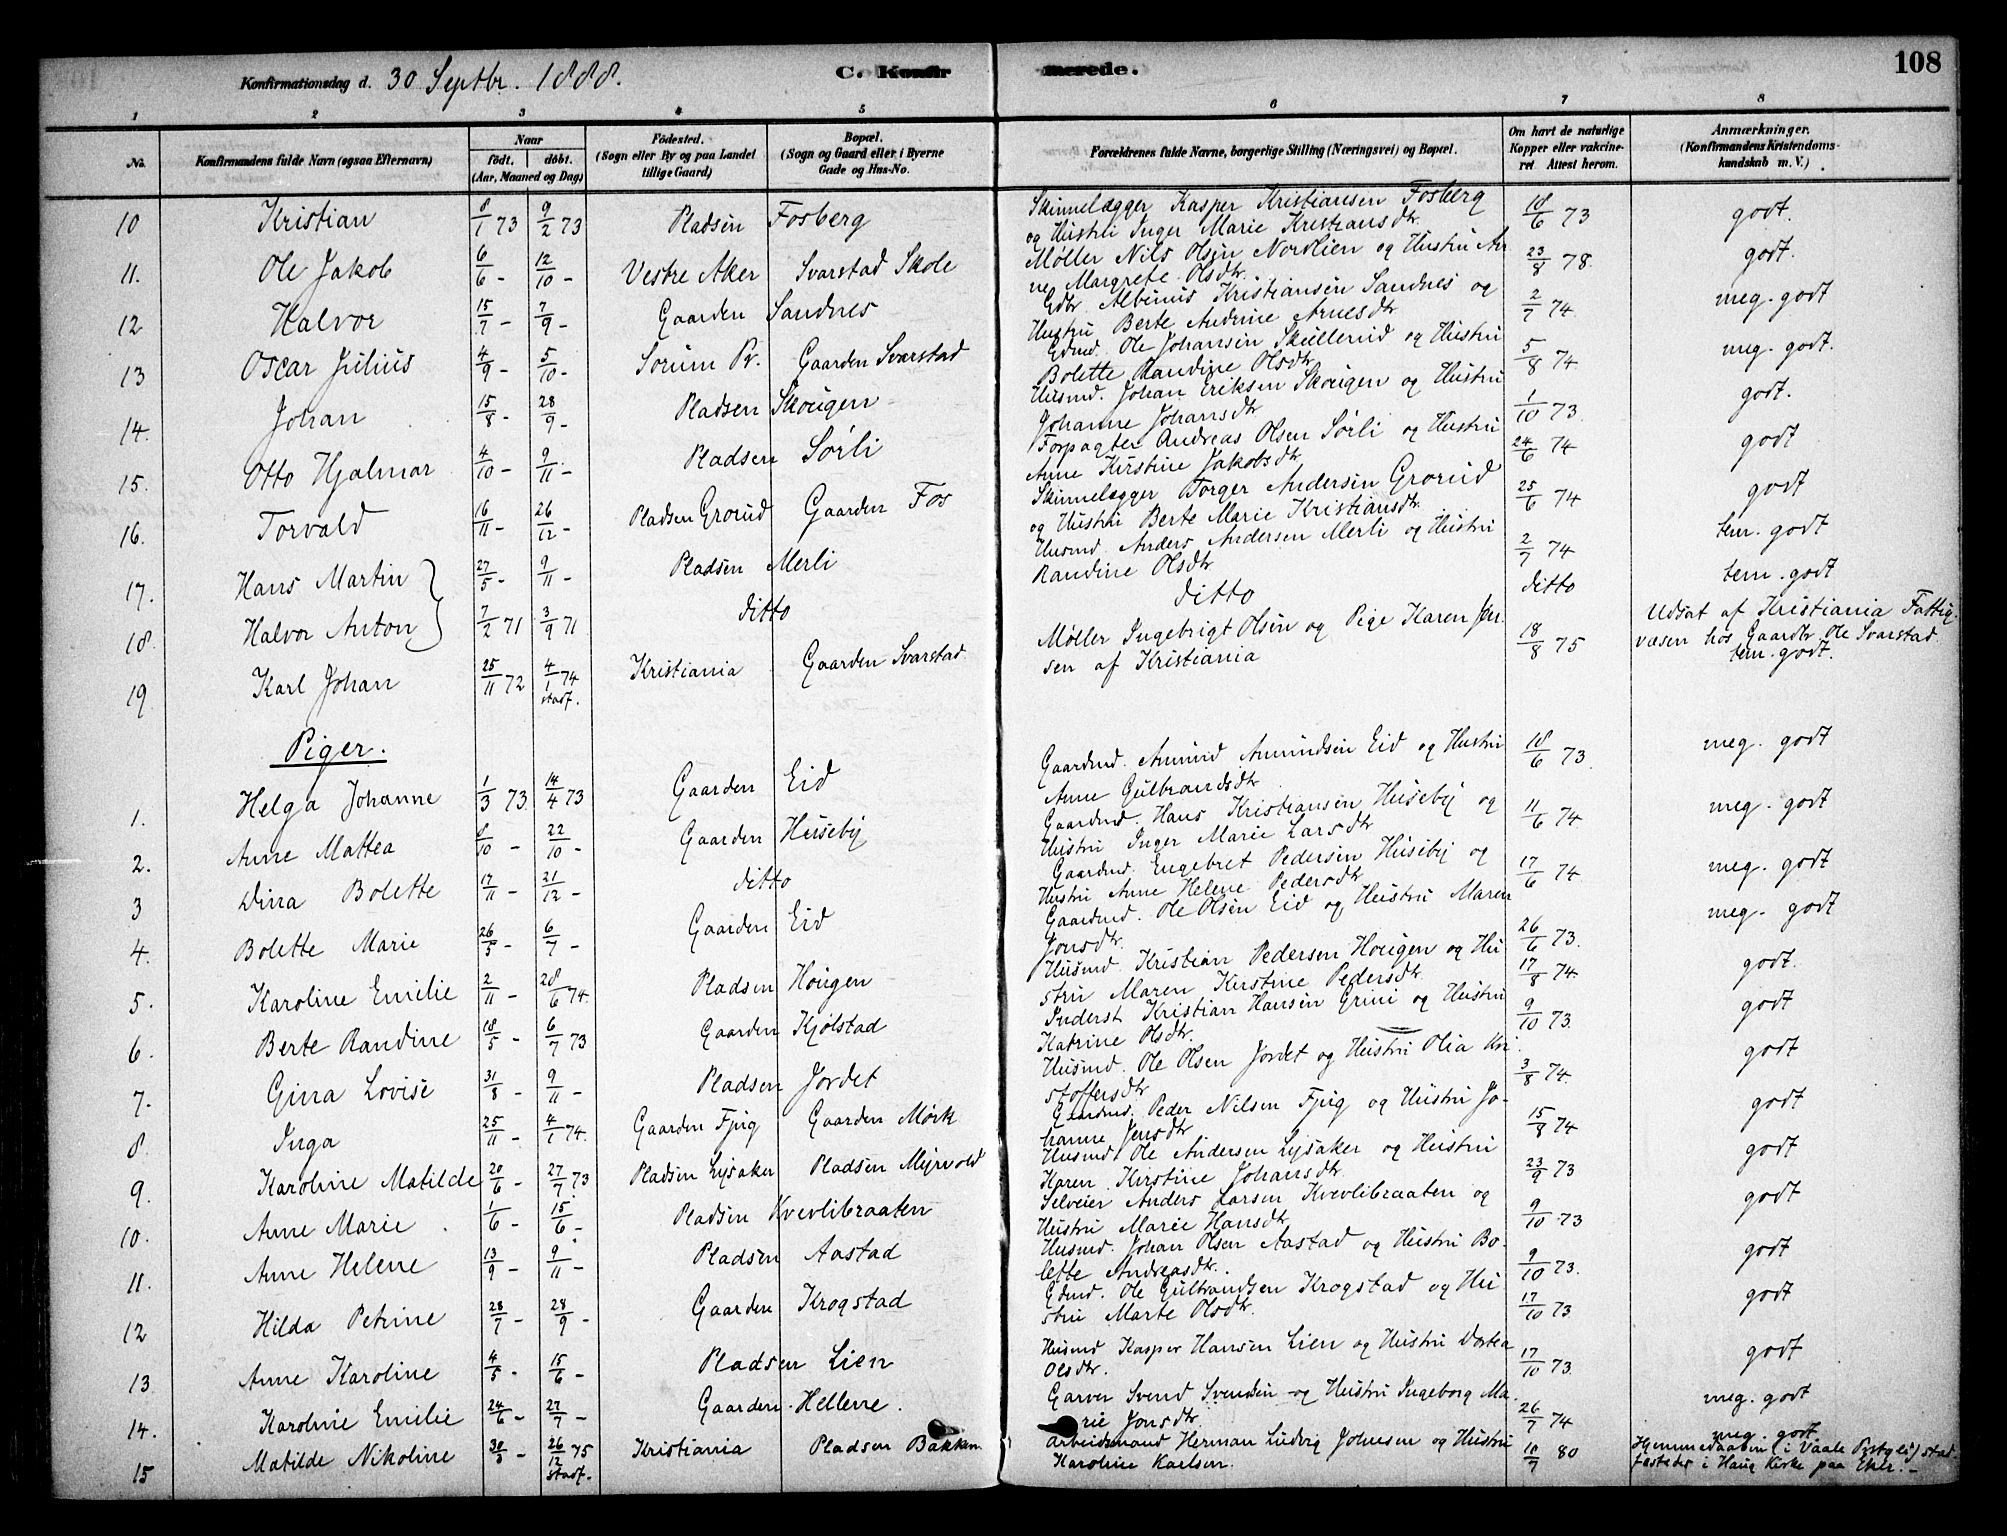 Konfirmationsdag d. 30 Septbr. 1888.
C. Konfirmerede.
108
1 2 3 4 5 6 7 8
No. Konfirmandens fulde Navn (ogsaa Efternavn) Naar født. døbt. (Aar, Maaned og Dag) Fødested. (Sogn eller By og paa Landet tillige Gaard) Bopæl. (Sogn og Gaard eller i Byerne Gade og Hus-No. Forældrenes fulde Navne, borgerlige Stilling (Næringsvei) og Bopæl. Om havt de naturlige Kopper eller vakcineret Attest herom. Anmærkninger. (Konfirmandens Kristendomskundskab m. V.)
10 Kristian 8/1 73 9/2 73 Pladsen Fosberg Skinnelægger Kasper Kristiansen Fosberg og Hustru Inger Marie Kristiansdtr. 18/6 73 godt.
11. Ole Jakob 6/6 - 12/10 - Vestre Aker Svarstad Skole Møller Nils Olsen Nordlien og Hustru Anne Margrete Olsdtr. 23/8 78. godt.
12 Halvor 15/7 - 7/9 - Gaarden Sandnes Gdbr. Albinus Kristiansen Sandnes og Hustru Berte Andrine Arnesdtr 2/7 74 meg. godt
13 Oscar Julius 4/9 - 5/10 - Sørum Pr. Gaarden Svarstad Gdmd. Ole Johansen Skullerud og Hustru Bolette Randine Olsdtr 5/8 74 meg. godt.
14. Johan 15/8 - 28/9 - Pladsen Skougen Husmd. Johan Eriksen Skougen og Hustru Johanne Johansdtr 1/10 73. godt.
15. Otto Hjalmar 4/10 - 9/11 - Pladsen Sørli Forpagter Andreas Olsen Sørli og Hustru Anne Kirstine Jakobsdtr 24/6 74 godt
16. Torvald 16/11 - 26/12 - Pladsen Grorud Gaarden Fos Skinnelægger Torger Andersen Grorud og Hustru Berte Marie Kristiansdtr. 25/6 74 godt
17. Hans Martin 27/5 - 9/11 - Pladsen Merli Husmd. Anders Andersen Merli og Hustru Randine Olsdtr 2/7 74 tem. godt
18. Halvor Anton 7/2 71 3/9 71 ditto ditto ditto tem. godt
19 Karl Johan 25/11 72 4/1 74 stadf. Kristiania Gaarden Svarstad Møller Ingebrigt Olsen og Pige Karen Jensen af Kristiania 18/8 75 Udsat af Kristiania Fattigvæsen hos Gaardbr. Ole Svarstad tem. godt.
Piger.
1. Helga Johanne 1/3 73. 14/4 73 Gaarden Eid Gaardmd. Amund Amundsen Eid og Hustru Anne Gulbrandsdtr 18/6 73. meg. godt
2. Anne Mattea 8/10 - 22/10 - Gaarden Huseby Gaardmd. Hans Kristiansen Huseby og Hustru Inger Marie Larsdtr 11/6 74 meg. godt
3 Dina Bolette 17/11 - 21/12 - ditto Gaardmd. Engebret Pedersen Huseby og Hustru Anne Helene Pedersdtr 17/6 74 meg. godt
4. Bolette Marie 26/5 - 6/7 - Gaarden Eid Gaardmd. Ole Olsen Eid og Hustru Maren Jonsdtr. 26/6 73. meg. godt
5. Karoline Emilie 2/11 - 28/6 74. Pladsen Hougen Husmd. Kristian Pedersen Hougen og Hustru Maren Kirstine Pedersdtr 17/8 74 godt.
6. Berte Randine 18/5 - 6/7 73 Gaarden Kjølstad Inderst Kristian Hansen Grini og Hustru Katrine Olsdtr. 9/10 73. godt
7. Gina Lovise 31/8 - 9/11 - Pladsen Jordet Husmd. Ole Olsen Jordet og Hustru Olia Kristoffersdtr 3/8 74. godt
8. Inga 25/11 - 4/1 74. Gaarden Fjug Gaarden Mørk Gaardmd. Peder Nilsen Fjug og Hustru Johanne Jensdtr 15/8 74 godt
9. Karoline Matilde 20/6 - 27/7 73 Pladsen Lysaker Pladsen Myrvold Husmd Ole Andersen Lysaker og Hustru Karen Kirstine Johansdtr 23/9 73 godt
10. Anne Marie 1/6 - 15/6 - Pladsen Kvevlibraaten Selveier Anders Larsen Kvevlibraaten og Hustru Marie Hansdtr 9/10 73 godt
11. Anne Helene 13/9 - 9/11 - Pladsen Aastad Husmd. Johan Olsen Aastad og Hustru Bolette Andreasdtr. 9/10 73. godt
12 Hilda Petrine 28/7 - 28/9 - Gaarden Krogstad Gdmd. Ole Gulbrandsen Krogstad og Hustru Marte Olsdtr. 17/10 73. godt
13. Anne Karoline 4/5 - 15/6 - Pladsen Lien Husmd Kasper Hansen Lien og Hustru Dortea Olsdtr. 17/10 73. godt
14. Karoline Emilie 24/6 - 27/7 - Gaarden Hellene. Garver Svend Svendsen og Hustru Ingeborg Marie Jonsdtr. 26/7 74 meg. godt
15 Matilde Nikoline 30/3 - 26/12 75 stadf. Kristiania Pladsen Bakken Arbeidsmand Herman Ludvig Johnsen og Hustru Karoline Karlsen. 10/7 80 meg. godt Hjemmedaaben i Vaale Prstgj. stadfæstedes i Haug Kirke paa Eker. -